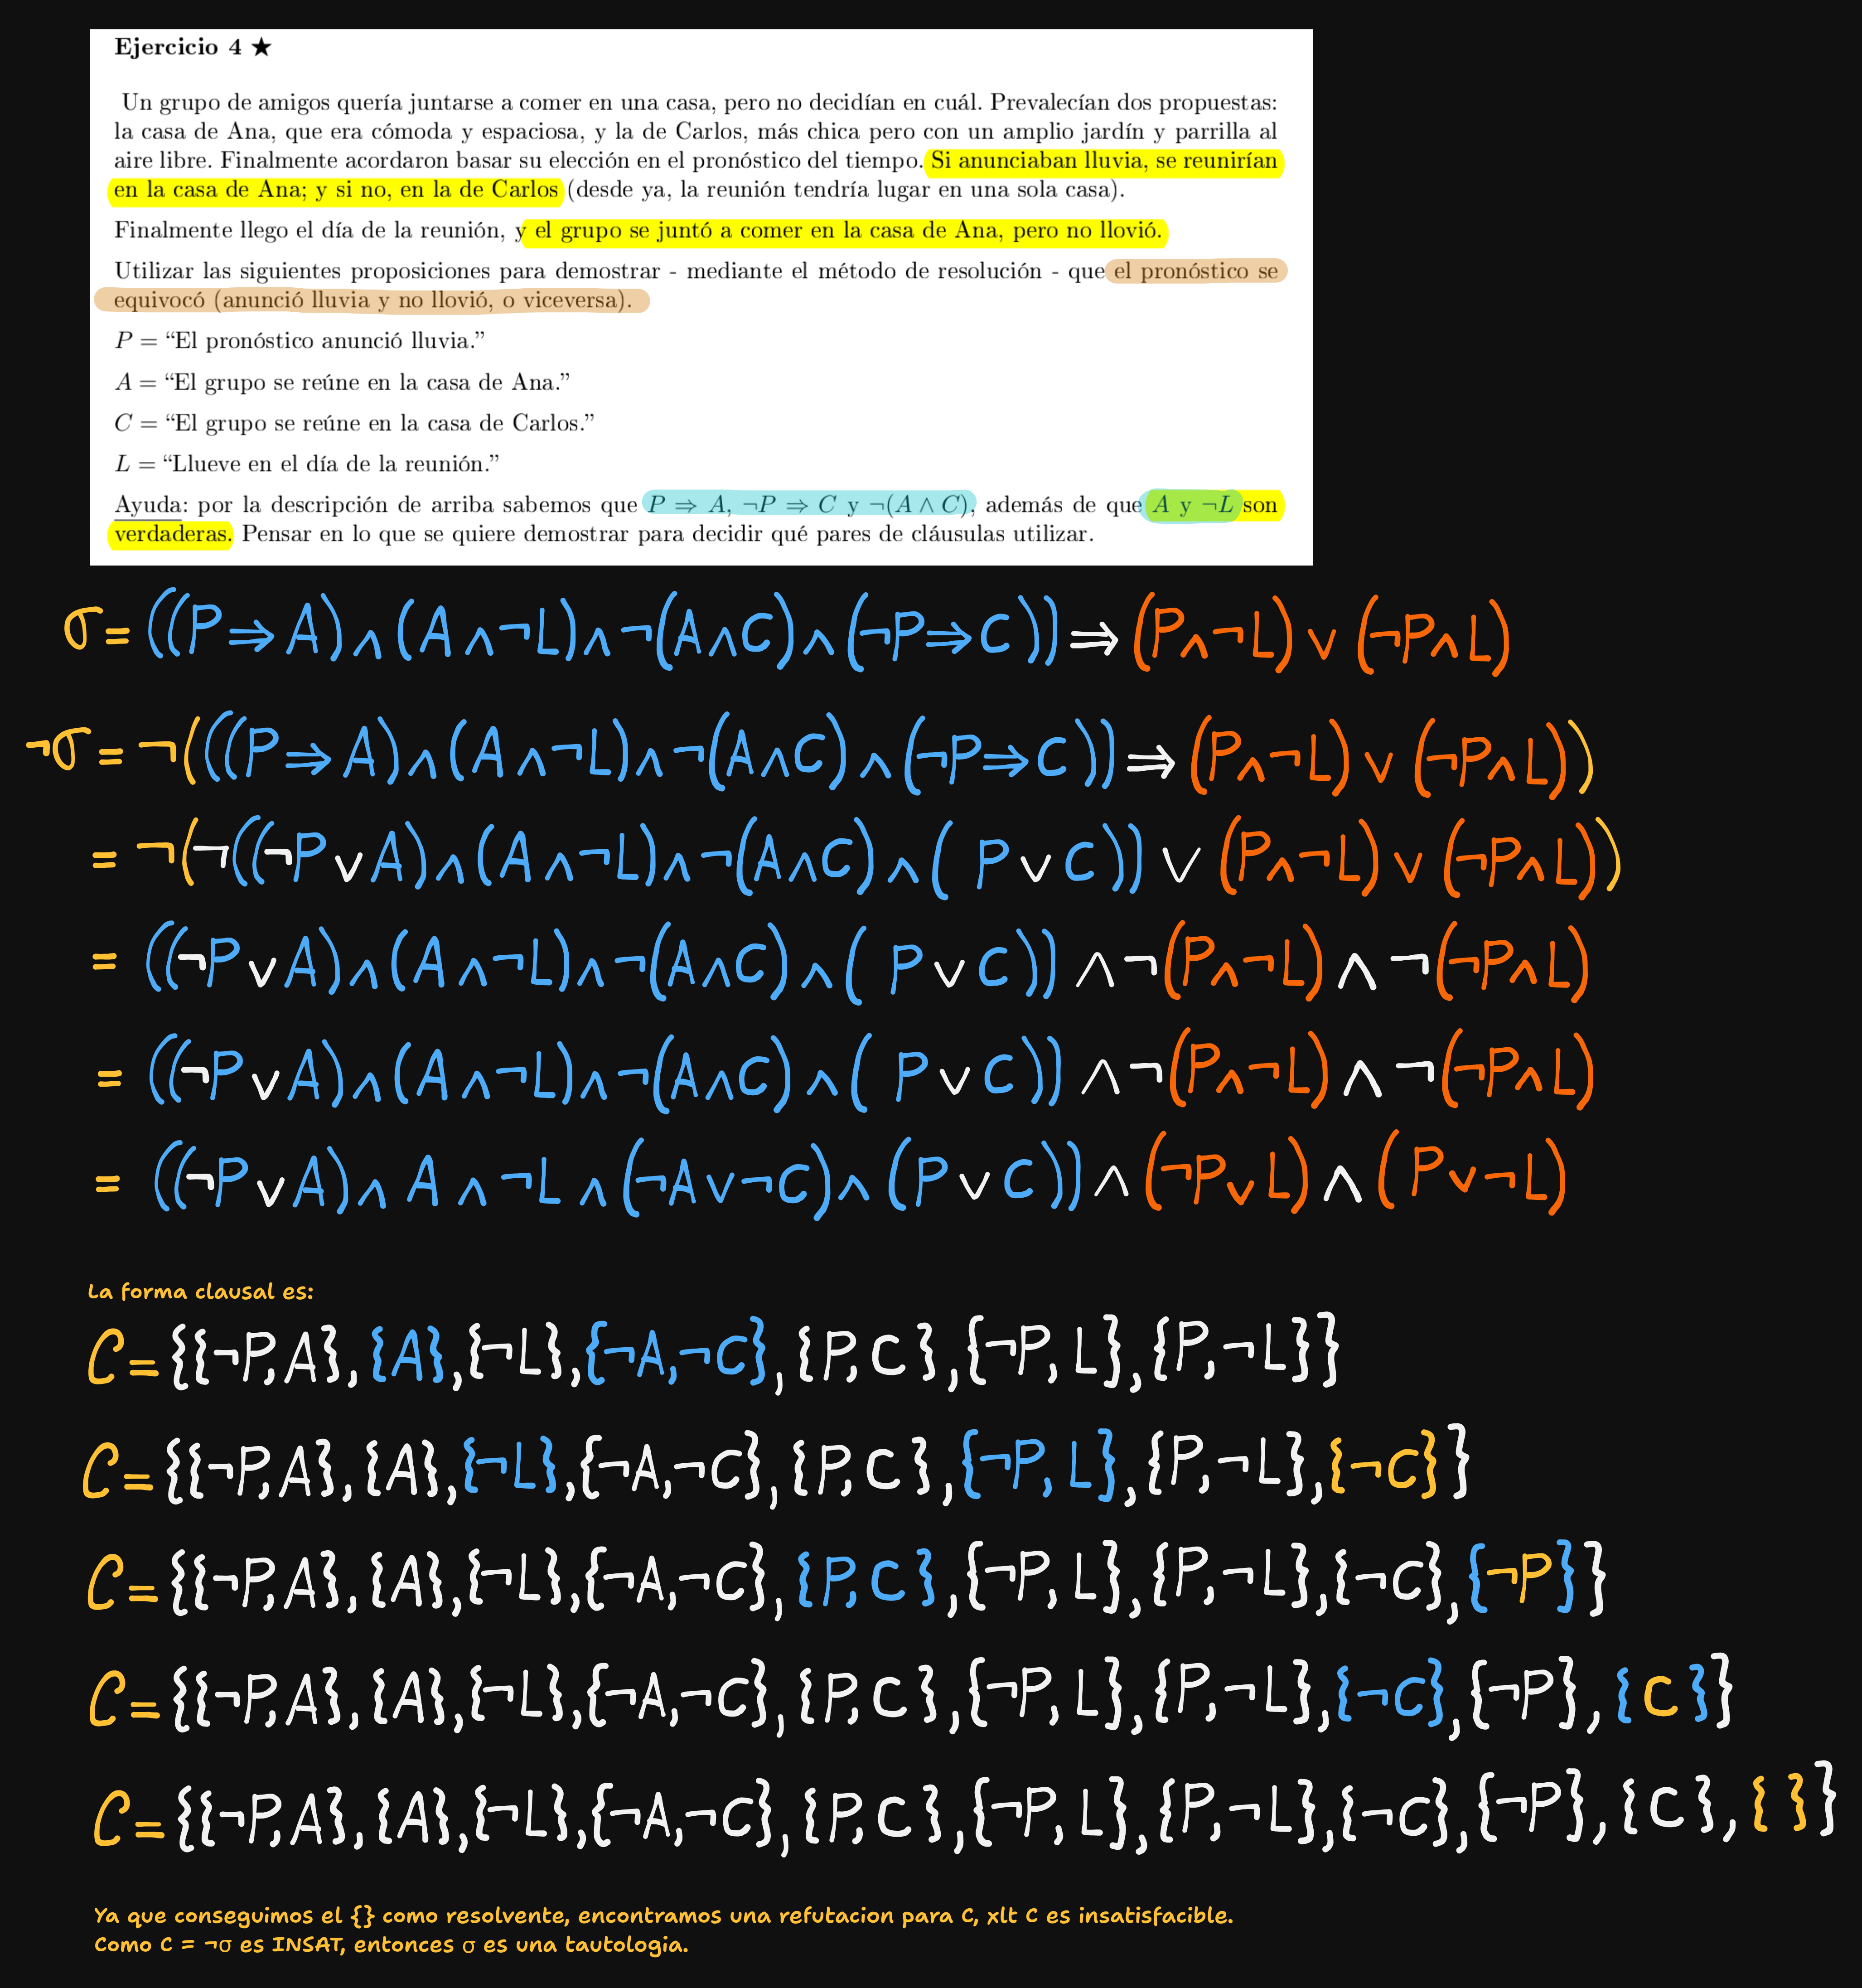 Ejercicio 4 ★
Un grupo de amigos quería juntarse a comer en una casa, pero no decidían en cuál. Prevalecían dos propuestas:
la casa de Ana, que era cómoda y espaciosa, y la de Carlos, más chica pero con un amplio jardín y parrilla al
aire libre. Finalmente acordaron basar su elección en el pronóstico del tiempo. Si anunciaban lluvia, se reunirían
en la casa de Ana; y si no, en la de Carlos (desde ya, la reunión tendría lugar en una sola casa).
Finalmente llego el día de la reunión, y el grupo se juntó a comer en la casa de Ana, pero no llovió.
Utilizar las siguientes proposiciones para demostrar - mediante el método de resolución - que el pronóstico se
equivocó (anunció lluvia y no llovió, o viceversa).
P = “El pronóstico anunció lluvia.”
A = “El grupo se reúne en la casa de Ana.”
C = “El grupo se reúne en la casa de Carlos.”
L = “Llueve en el día de la reunión.”
Ayuda: por la descripción de arriba sabemos que P ⇒ A, ¬P ⇒ C y ¬(A ∧ C), además de que A y ¬L son
verdaderas. Pensar en lo que se quiere demostrar para decidir qué pares de cláusulas utilizar.
σ = ((P ⇒ A) ∧ (A ∧ ¬L) ∧ ¬(A ∧ C) ∧ (¬P ⇒ C)) ⇒ (P ∧ ¬L) ∨ (¬P ∧ L)
¬σ = ¬(((P ⇒ A) ∧ (A ∧ ¬L) ∧ ¬(A ∧ C) ∧ (¬P ⇒ C)) ⇒ (P ∧ ¬L) ∨ (¬P ∧ L))
= ¬(¬((¬P ∨ A) ∧ (A ∧ ¬L) ∧ ¬(A ∧ C) ∧ (P ∨ C)) ∨ (P ∧ ¬L) ∨ (¬P ∧ L))
= ((¬P ∨ A) ∧ (A ∧ ¬L) ∧ ¬(A ∧ C) ∧ (P ∨ C)) ∧ ¬(P ∧ ¬L) ∧ ¬(¬P ∧ L)
= ((¬P ∨ A) ∧ (A ∧ ¬L) ∧ ¬(A ∧ C) ∧ (P ∨ C)) ∧ ¬(P ∧ ¬L) ∧ ¬(¬P ∧ L)
= ((¬P ∨ A) ∧ A ∧ ¬L ∧ (¬A ∨ ¬C) ∧ (P ∨ C)) ∧ (¬P ∨ L) ∧ (P ∨ ¬L)
La forma clausal es:
C = {{¬P, A}, {A}, {¬L}, {¬A, ¬C}, {P, C}, {¬P, L}, {P, ¬L}}
C = {{¬P, A}, {A}, {¬L}, {¬A, ¬C}, {P, C}, {¬P, L}, {P, ¬L}, {¬C}}
C = {{¬P, A}, {A}, {¬L}, {¬A, ¬C}, {P, C}, {¬P, L}, {P, ¬L}, {¬C}, {¬P}}
C = {{¬P, A}, {A}, {¬L}, {¬A, ¬C}, {P, C}, {¬P, L}, {P, ¬L}, {¬C}, {¬P}, {C}}
C = {{¬P, A}, {A}, {¬L}, {¬A, ¬C}, {P, C}, {¬P, L}, {P, ¬L}, {¬C}, {¬P}, {C}, { }}
Ya que conseguimos el {} como resolvente, encontramos una refutacion para C, xlt C es insatisfacible.
Como C = ¬σ es INSAT, entonces σ es una tautologia.